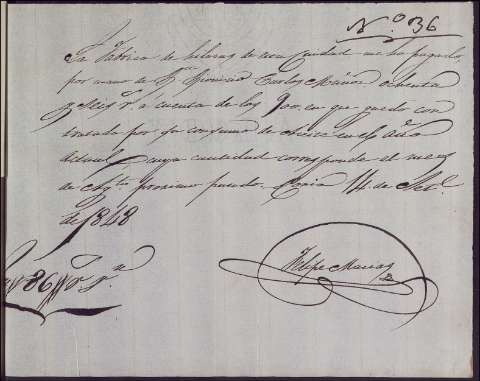 Nº 36
La Fabrica de hilaras de esta Ciudad me ha pagado
por mano de D. Dionicio Carlos Muñoz ochenta
y seis rˢ. a cuenta de los 900, en que quedo con
tratada por su consumo de Aceite en el año
actual, cuya cantidad corresponde al mes
de Agto. proximo pasado. Coria 14 de Set.
de 1848
Felipe Macias
86 rˢ. vn